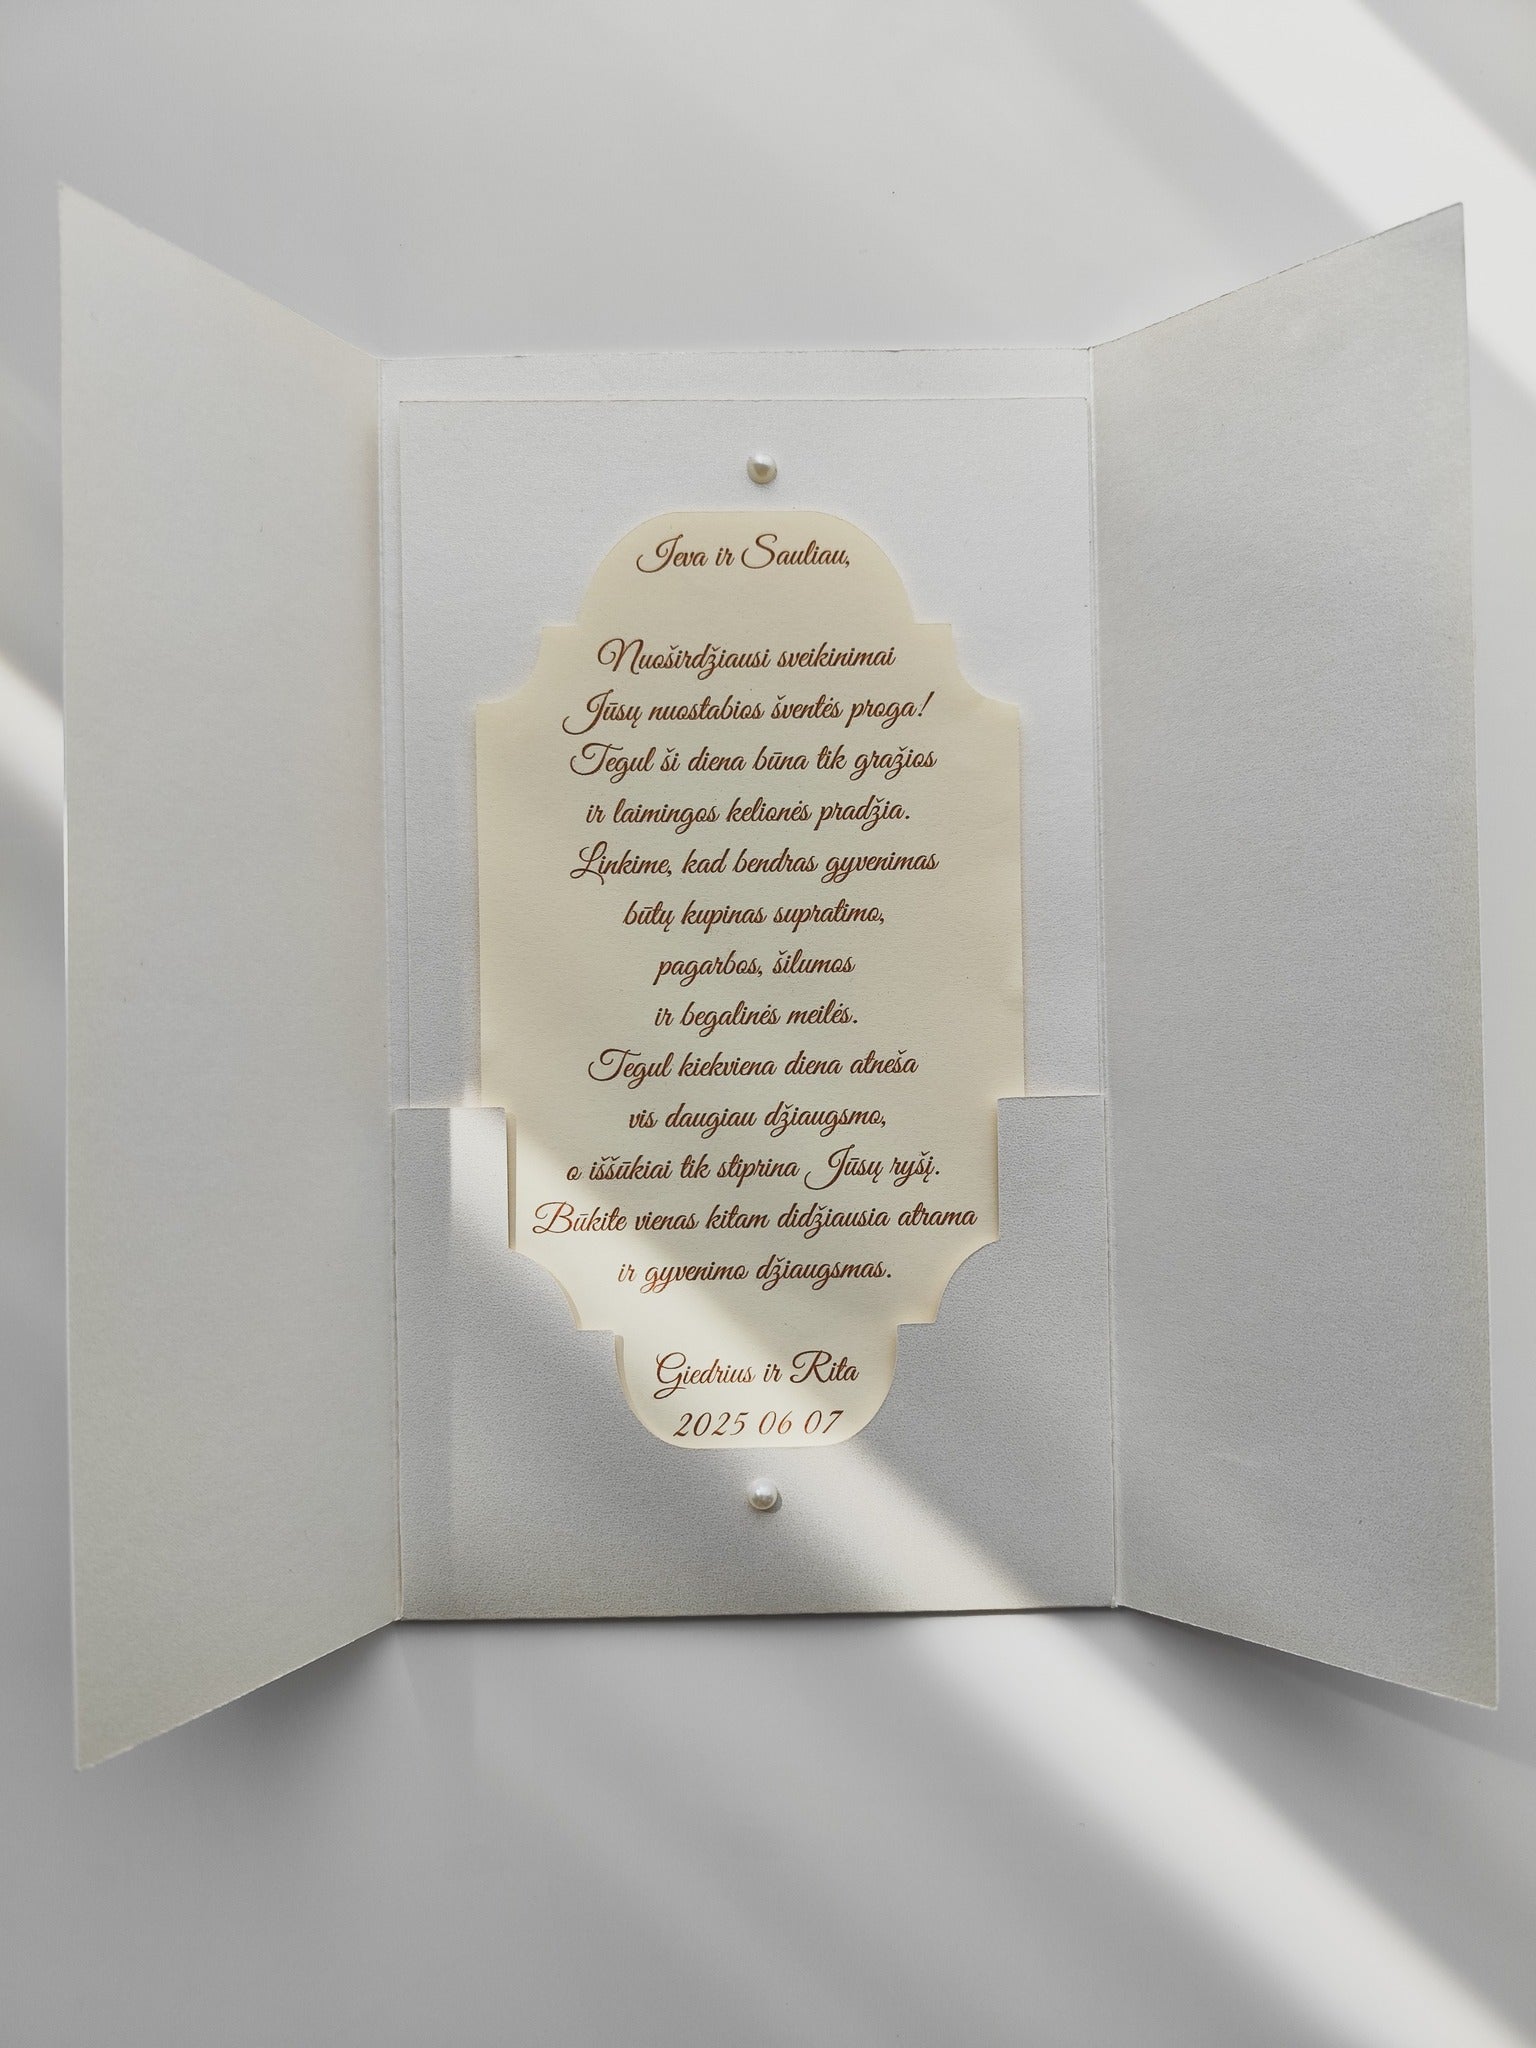 Ieva ir Sauliau,
Nuoširdžiausi sveikinimai
Jūsų nuostabios šventės proga!
Tegul ši diena būna tik gražios
ir laimingos kelionės pradžia.
Linkime, kad bendras gyvenimas
būtų kupinas supratimo,
pagarbos, šilumos
ir begalinės meilės.
Tegul kiekviena diena atneša
vis daugiau džiaugsmo,
o iššūkiai tik stiprina Jūsų ryšį.
Būkite vienas kitam didžiausia atrama
ir gyvenimo džiaugsmas.
Giedrius ir Rita
2025 06 07